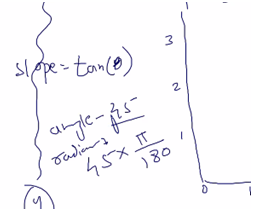 slope = tan(θ)
angle - 45
radians
45 × π/180
y
3
2
1
0